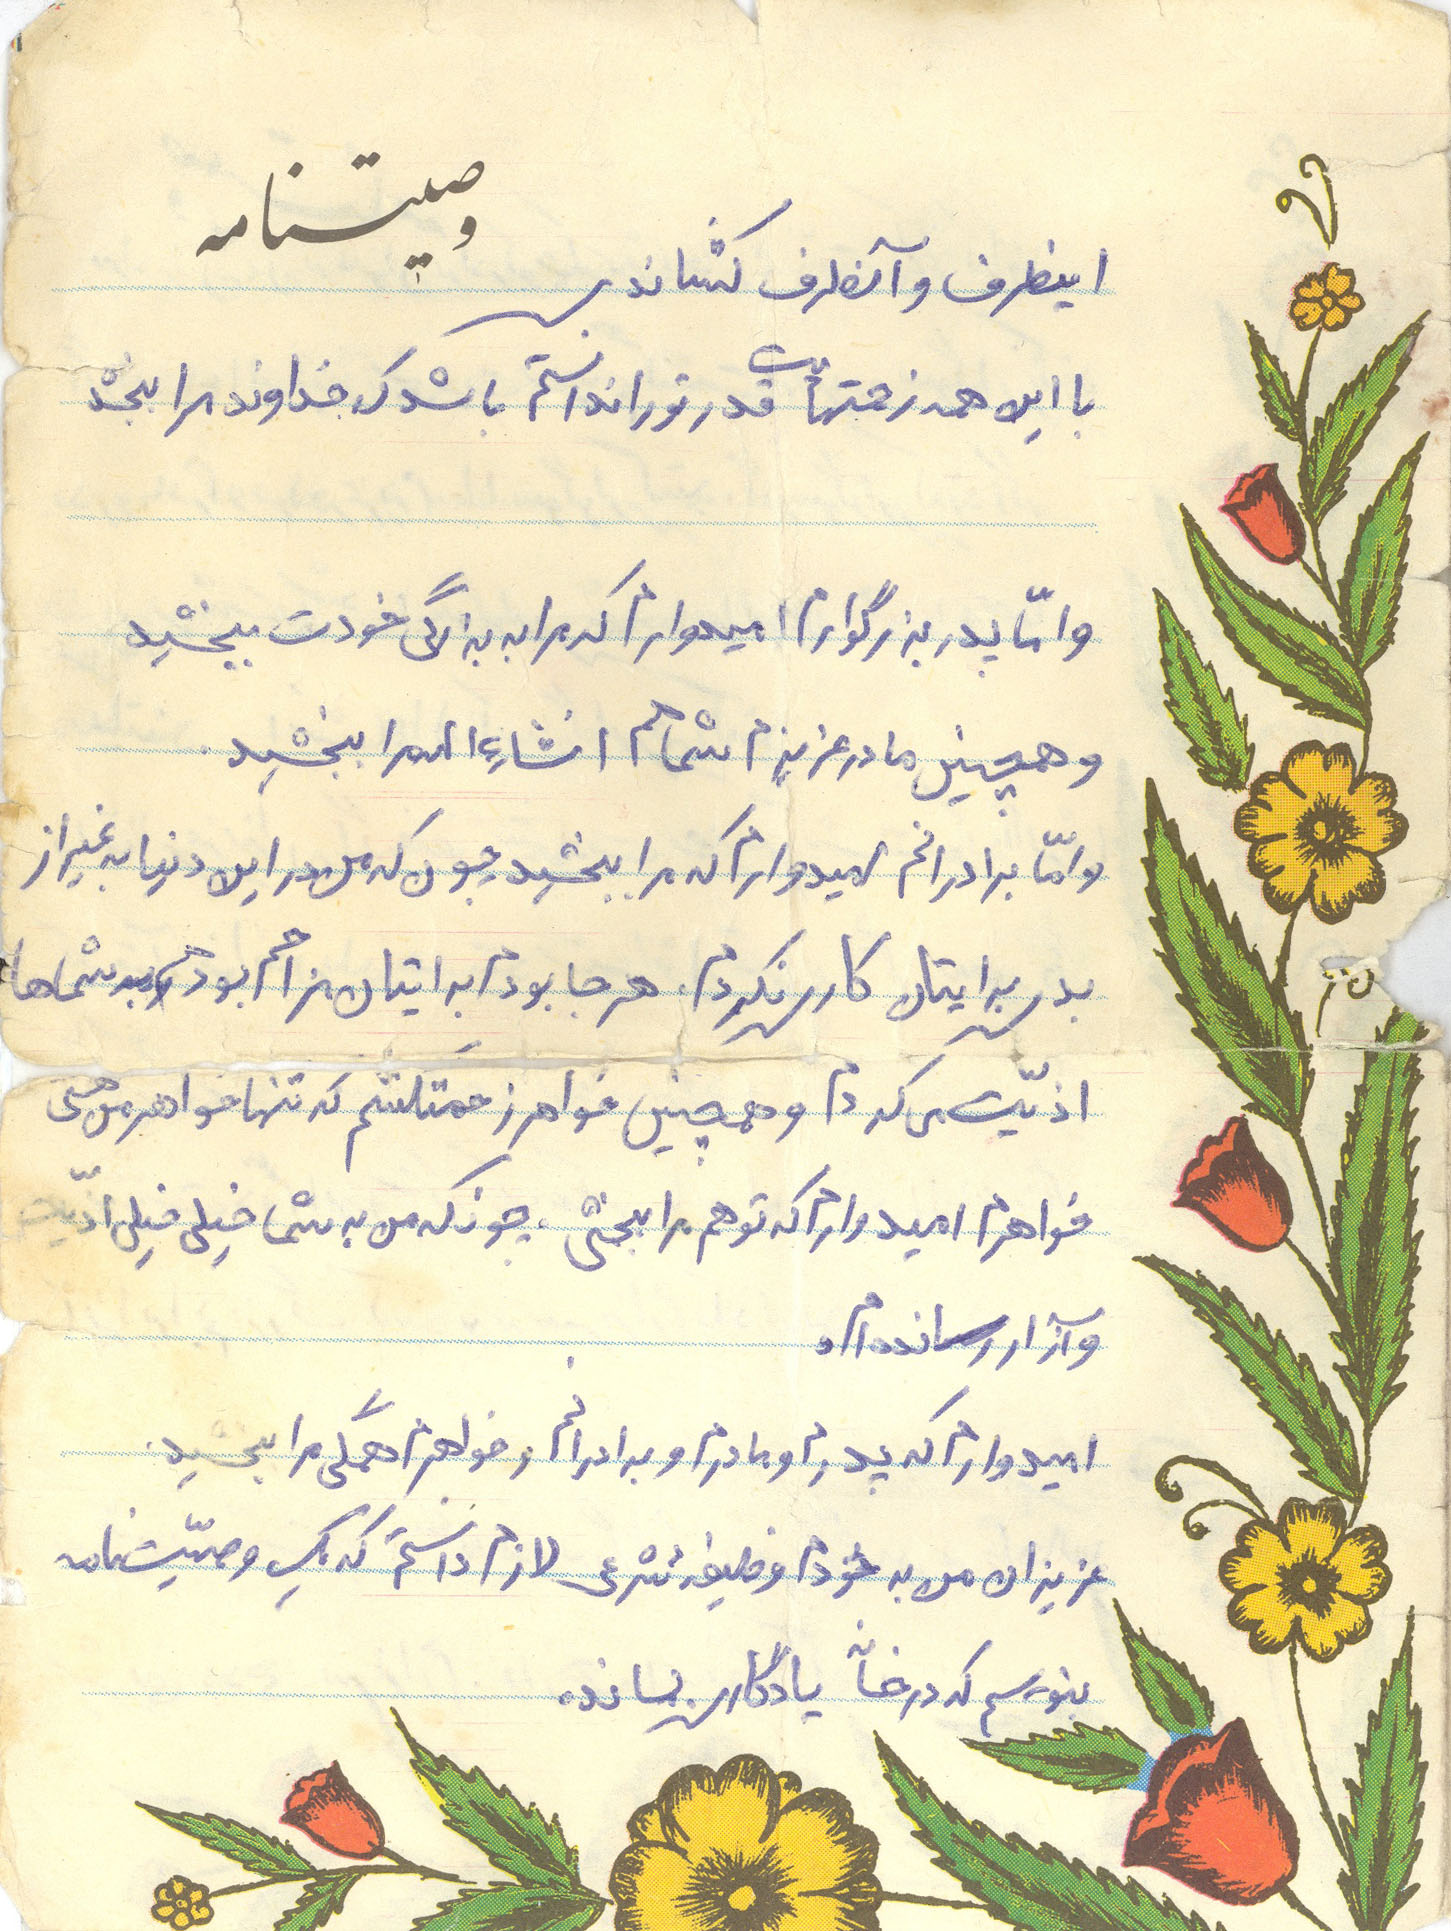 وصیتنامه
اینطرف و آنطرف کشاندی
با این همه زحمتهایت قدر تو را ندانستم باشد که خداوند مرا ببخشد
و امّا پدر بزرگوارم امیدوارم که مرا به بزرگی خودت ببخشید
و همچنین مادر عزیزم شما هم انشاءالله مرا ببخشید.
و امّا برادرانم امیدوارم که مرا ببخشید چون که من در این دنیا به غیر از
بدی برایتان کاری نکردم. هر جا بودم برایتان مزاحم بودم به شماها
اذیّت می کردم و همچنین خواهر زحمتکشم که تنها خواهر من هستی
خواهرم امیدوارم که تو هم مرا ببخشی. چونکه من به شما خیلی خیلی اذیّت
و آزار رسانده‌ام.
امیدوارم که پدرم و مادرم و برادرانم و خواهرم همگی مرا ببخشید.
عزیزان من به خودم وظیفه شرعی لازم دانستم که یک وصیّت نامه
بنویسم که در خانه یادگاری بماند.